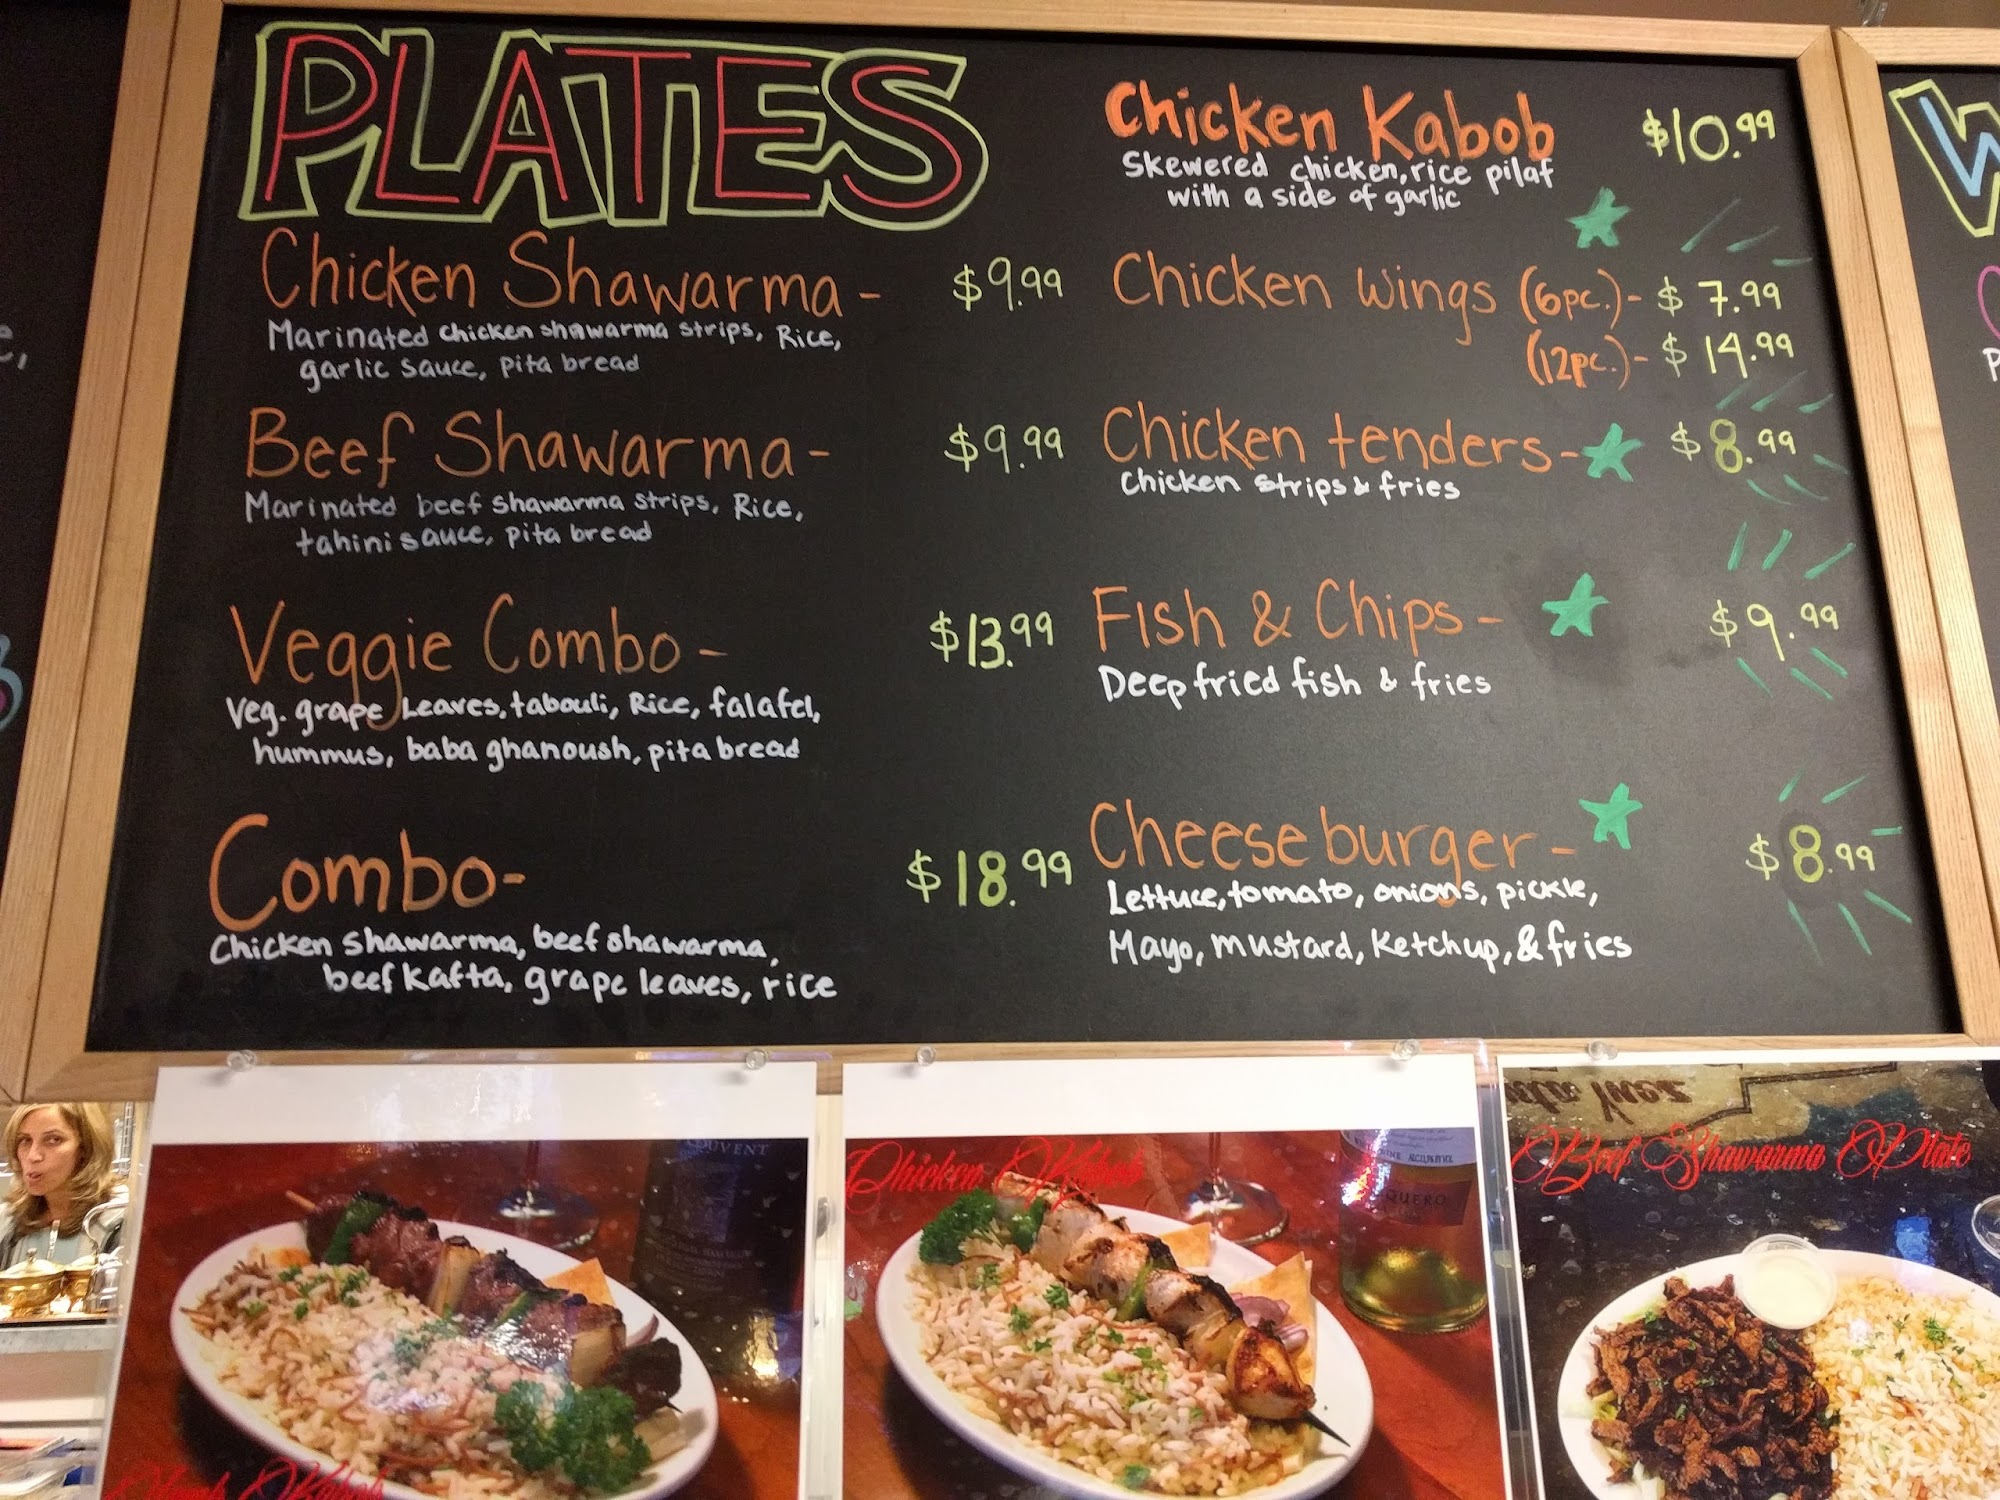 PLATES
Chicken Shawarma - $9.99
Marinated chicken shawarma strips, Rice,
garlic sauce, pita bread
Beef Shawarma - $9.99
Marinated beef shawarma strips, Rice,
tahini sauce, pita bread
Veggie Combo - $13.99
Veg. grape Leaves, tabouli, Rice, falafel,
hummus, baba ghanoush, pita bread
Combo - $18.99
Chicken shawarma, beef shawarma,
beef kafta, grape leaves, rice
Chicken Kabob $10.99
Skewered chicken, rice pilaf
with a side of garlic
Chicken wings (6pc.) - $7.99
(12pc.) - $14.99
Chicken tenders - $8.99
Chicken strips & fries
Fish & Chips - $9.99
Deep fried fish & fries
Cheese burger - $8.99
Lettuce, tomato, onions, pickle,
Mayo, mustard, Ketchup, & fries
Chicken Kabob
QUERO
Beef Shawarma Plate
Kabob